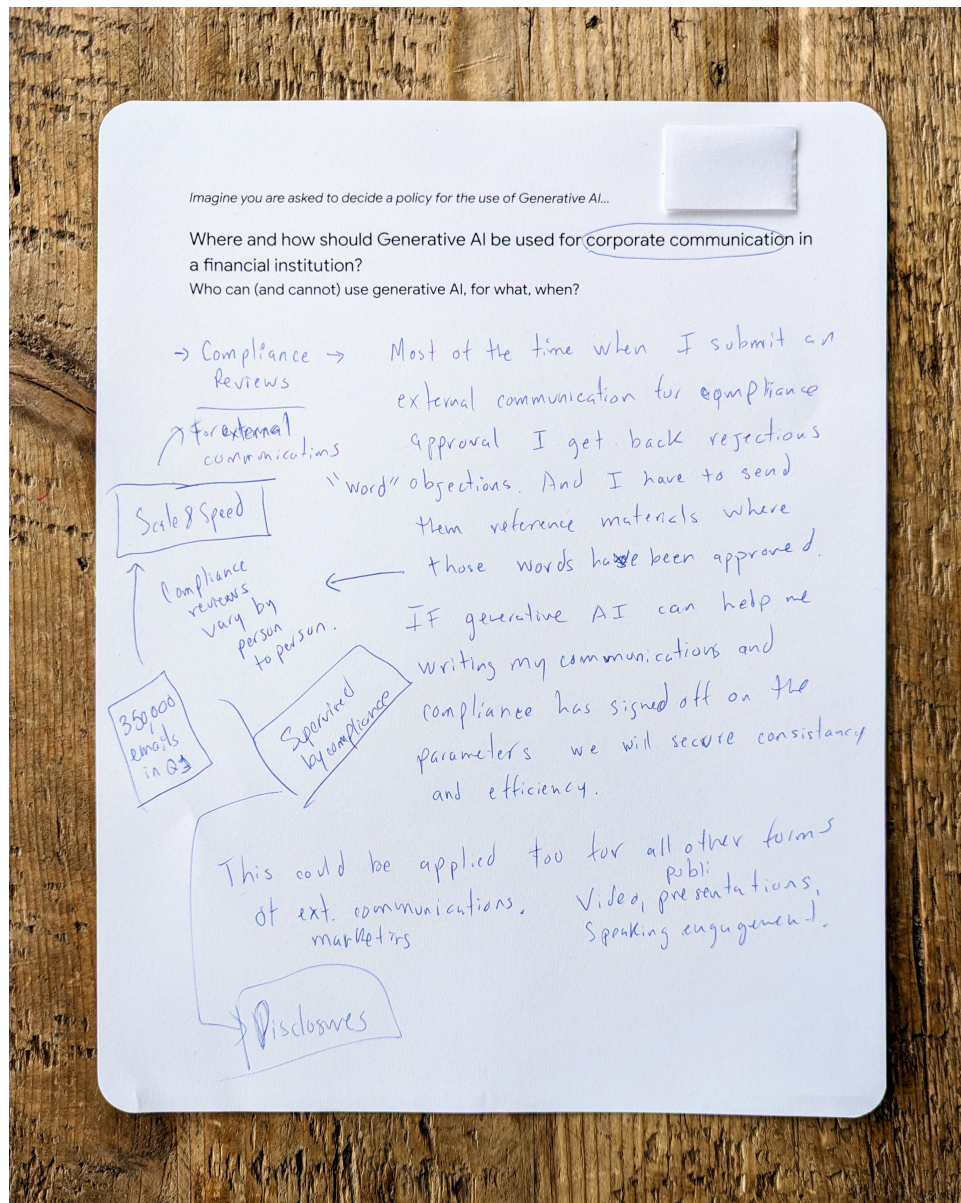 Imagine you are asked to decide a policy for the use of Generative AI...
Where and how should Generative AI be used for corporate communication in
a financial institution?
Who can (and cannot) use generative AI, for what, when?
→ Compliance →
Reviews
For external
communications
Scale & Speed
Compliance
reviews
vary by
person
to person.
350,000
emails
in Q3
Supervised
by compliance
Most of the time when I submit an
external communication for compliance
approval I get back rejections
"word" objections. And I have to send
them reference materials where
those words have been approved.
IF generative AI can help me
writing my communications and
compliance has signed off on the
parameters we will secure consistancy
and efficiency.
This could be applied too for all other forms
of ext. communications.
publi
Video, presentations,
Speaking engagement.
Disclosures